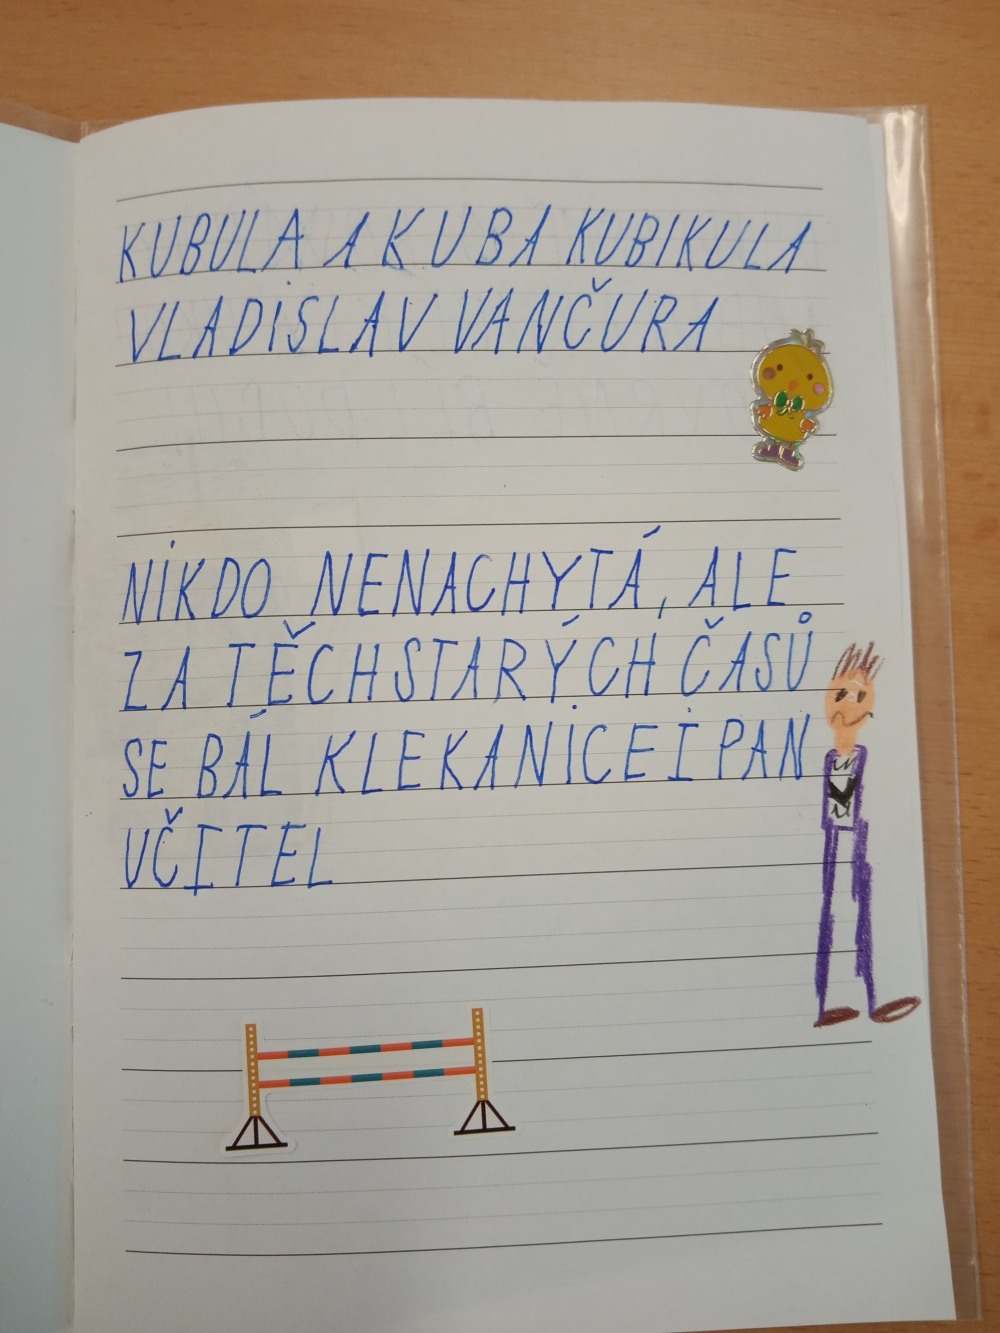 KUBULA A KUBA KUBIKULA
VLADISLAV VANČURA
NIKDO NENACHYTÁ, ALE
ZA TĚCH STARÝCH ČASŮ
SE BÁL KLEKANICE I PAN
UČITEL